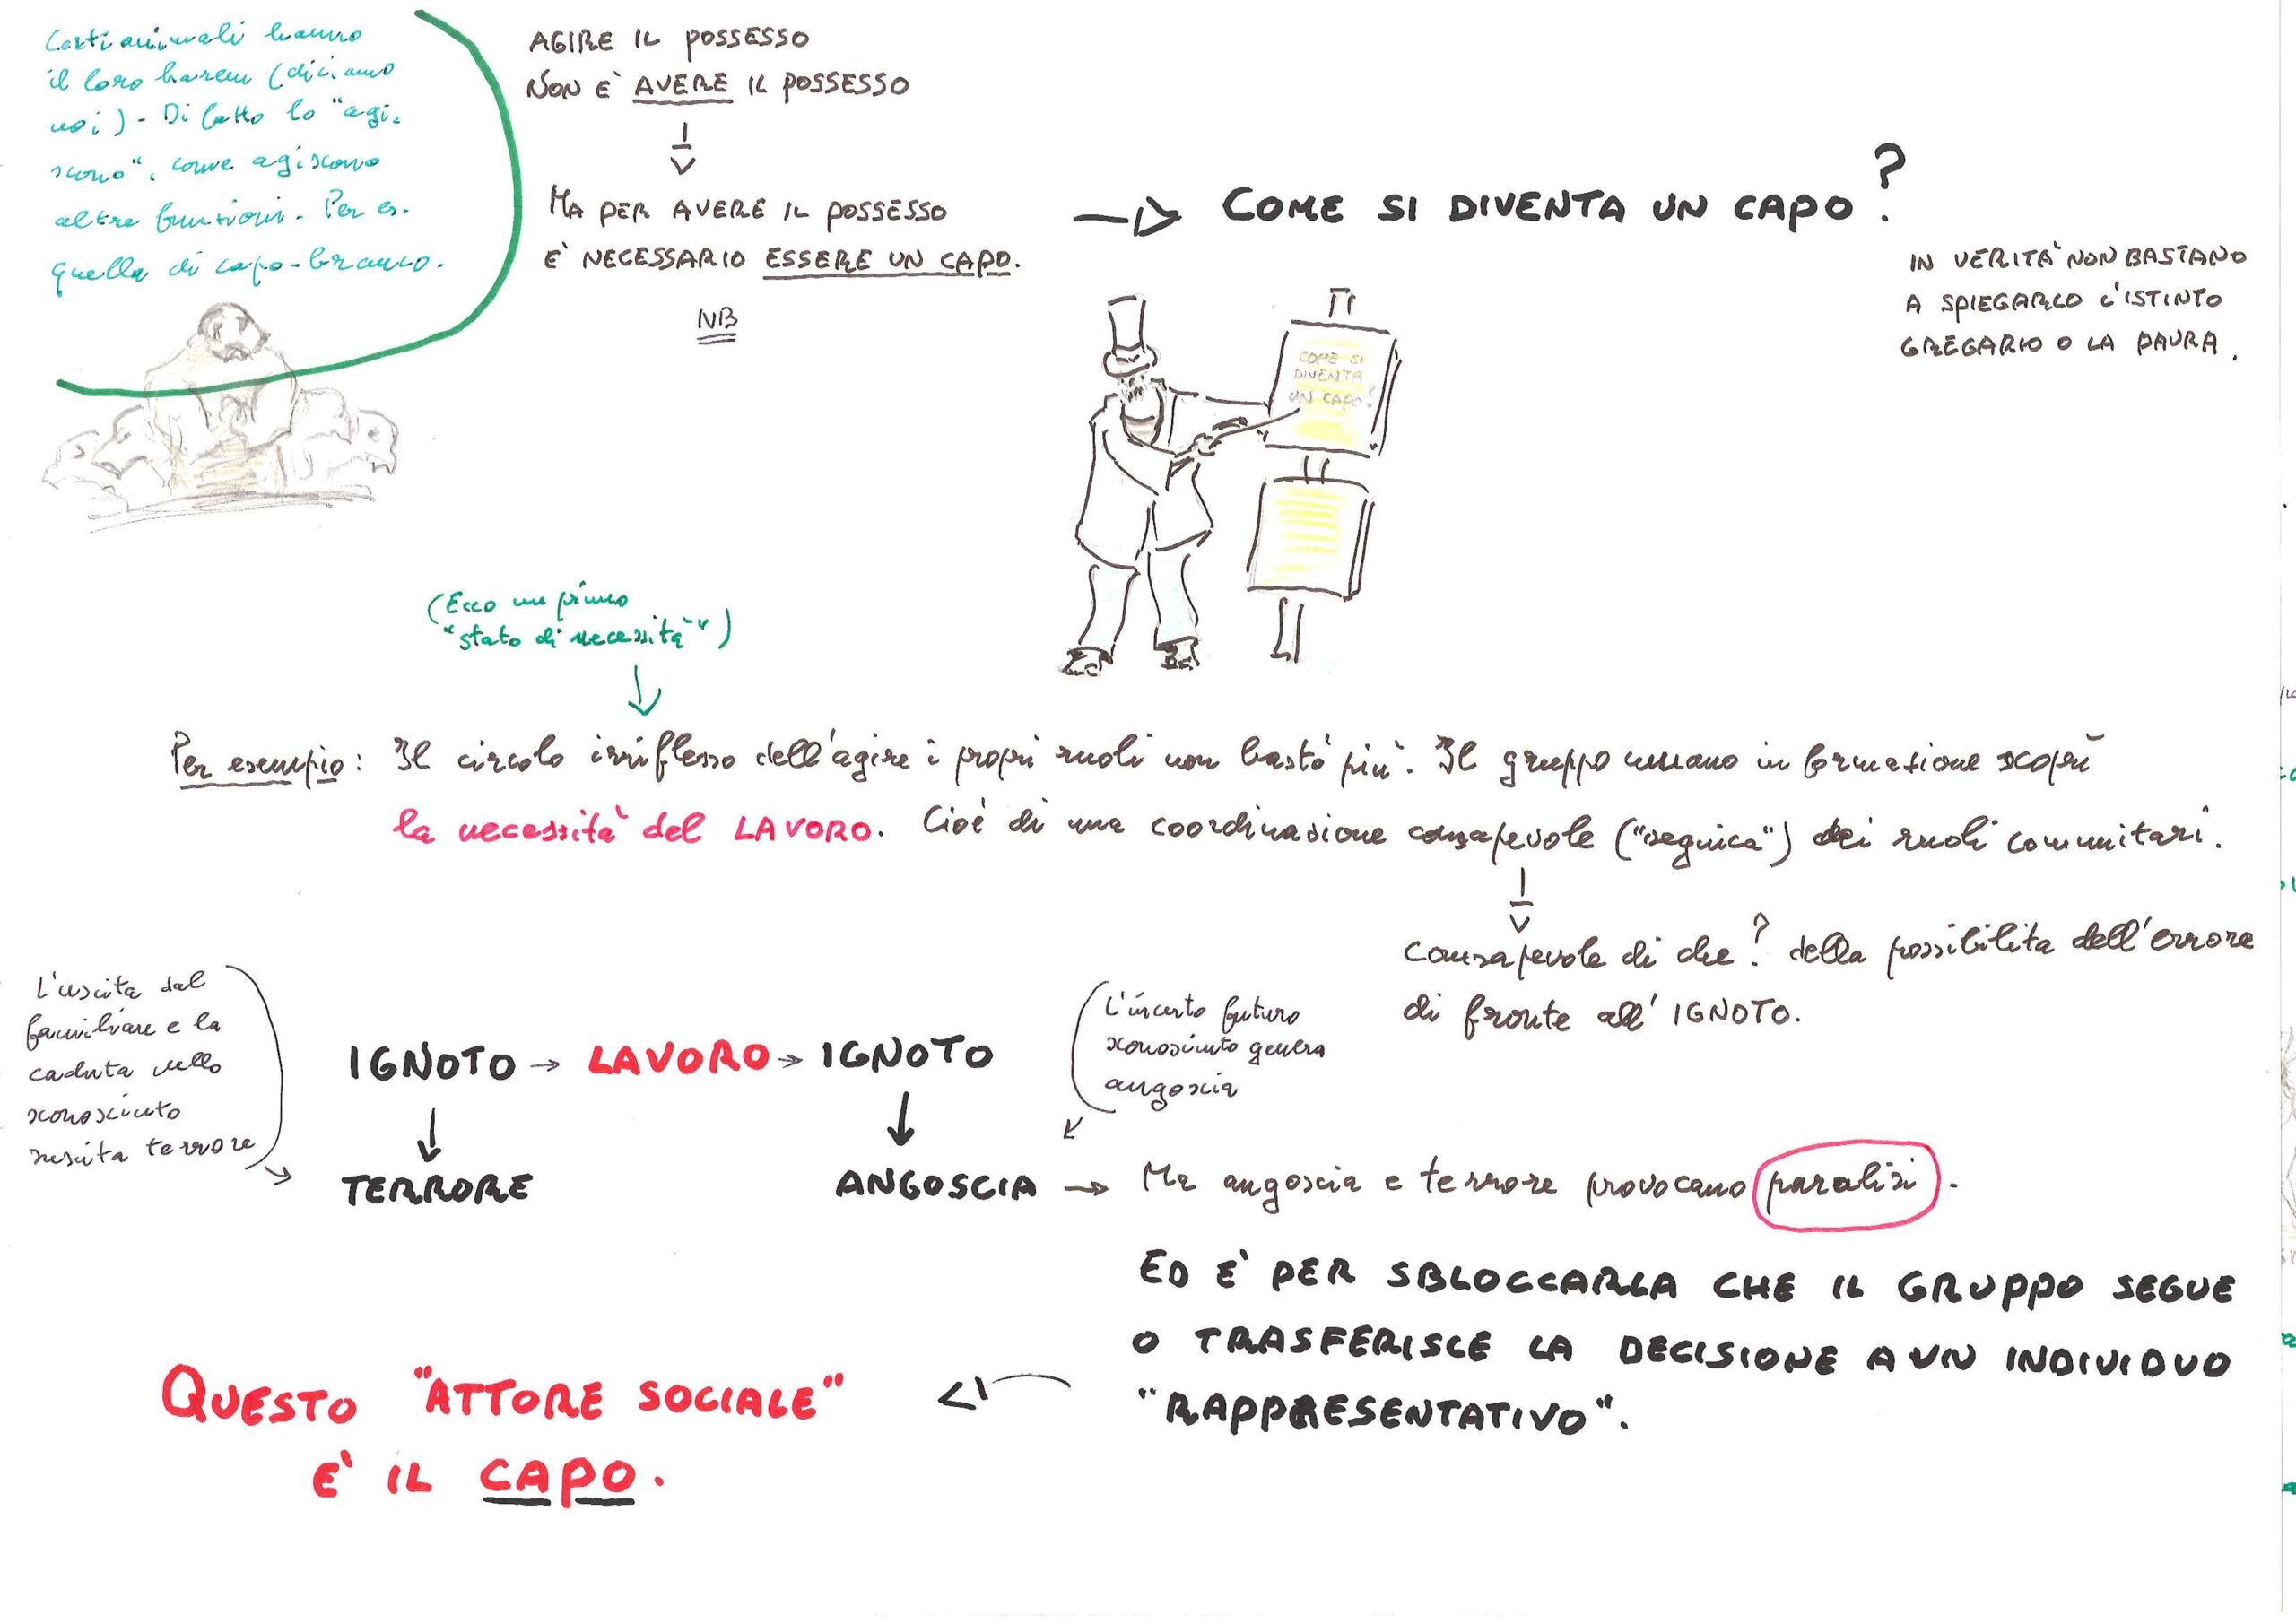 Certi animali hanno
il loro harem (diciamo
noi) - Di fatto lo "agi-
scono", come agiscono
altre funzioni. Per es.
quella di capo-branco.
AGIRE IL POSSESSO
NON E' AVERE IL POSSESSO
MA PER AVERE IL POSSESSO
E' NECESSARIO ESSERE UN CAPO.
NB
COME SI DIVENTA UN CAPO?
IN VERITA' NON BASTANO
A SPIEGARLO L'ISTINTO
GREGARIO O LA PAURA.
COME SI
DIVENTA
UN CAPO?
(Ecco un primo
"stato di necessità")
Per esempio: Il circolo irriflesso dell'agire i propri ruoli non bastò più. Il gruppo umano in formazione scoprì
la necessità del LAVORO. Cioè di una coordinazione consapevole ("segnica") dei ruoli comunitari.
consapevole di che? della possibilita dell'errore
di fronte all'IGNOTO.
L'uscita dal
familiare e la
caduta nello
sconosciuto
suscita terrore
IGNOTO → LAVORO → IGNOTO
L'incerto futuro
sconosciuto genera
angoscia
TERRORE
ANGOSCIA → Ma angoscia e terrore provocano paralisi.
ED E' PER SBLOCCARLA CHE IL GRUPPO SEGUE
O TRASFERISCE LA DECISIONE A UN INDIVIDUO
"RAPPRESENTATIVO".
QUESTO "ATTORE SOCIALE"
E' IL CAPO.